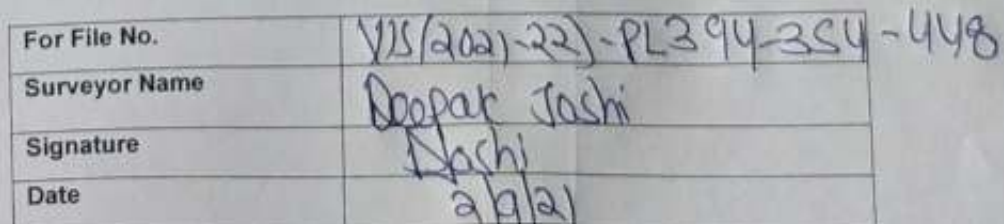 For File No. VIS(2021-22)-PL394-354-448
Surveyor Name Deepak Joshi
Signature DJoshi
Date 2/9/21